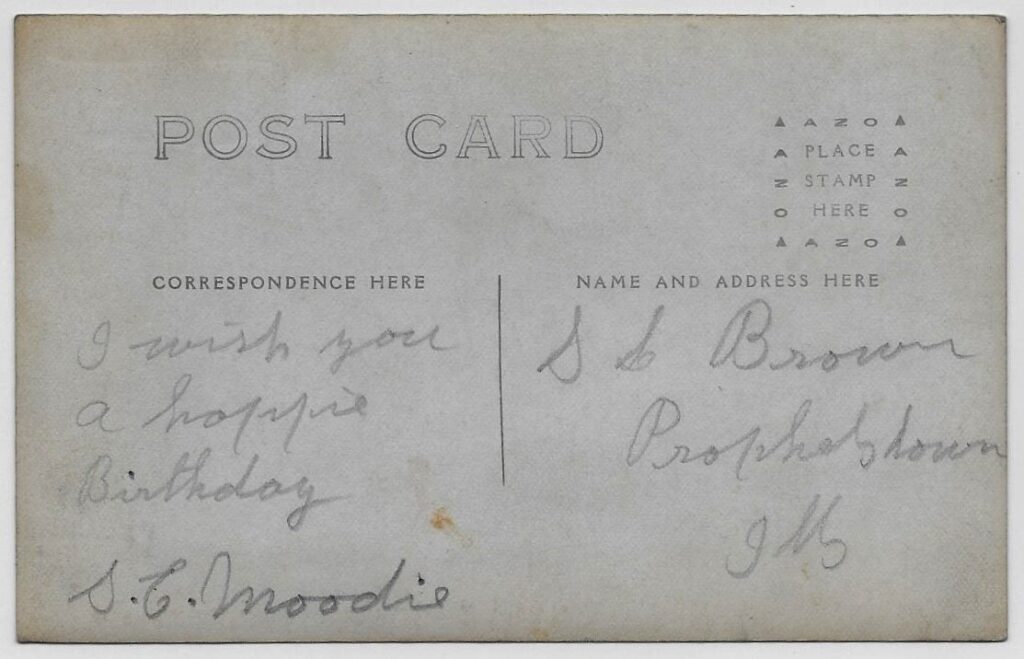 POST CARD
▲ A Z O ▲
A PLACE A
Z STAMP Z
O HERE O
▲ A Z O ▲
CORRESPONDENCE HERE
I wish you
a hoppie
Birthday
S. C. Moodie
NAME AND ADDRESS HERE
Brown
Prophetstown
Ills